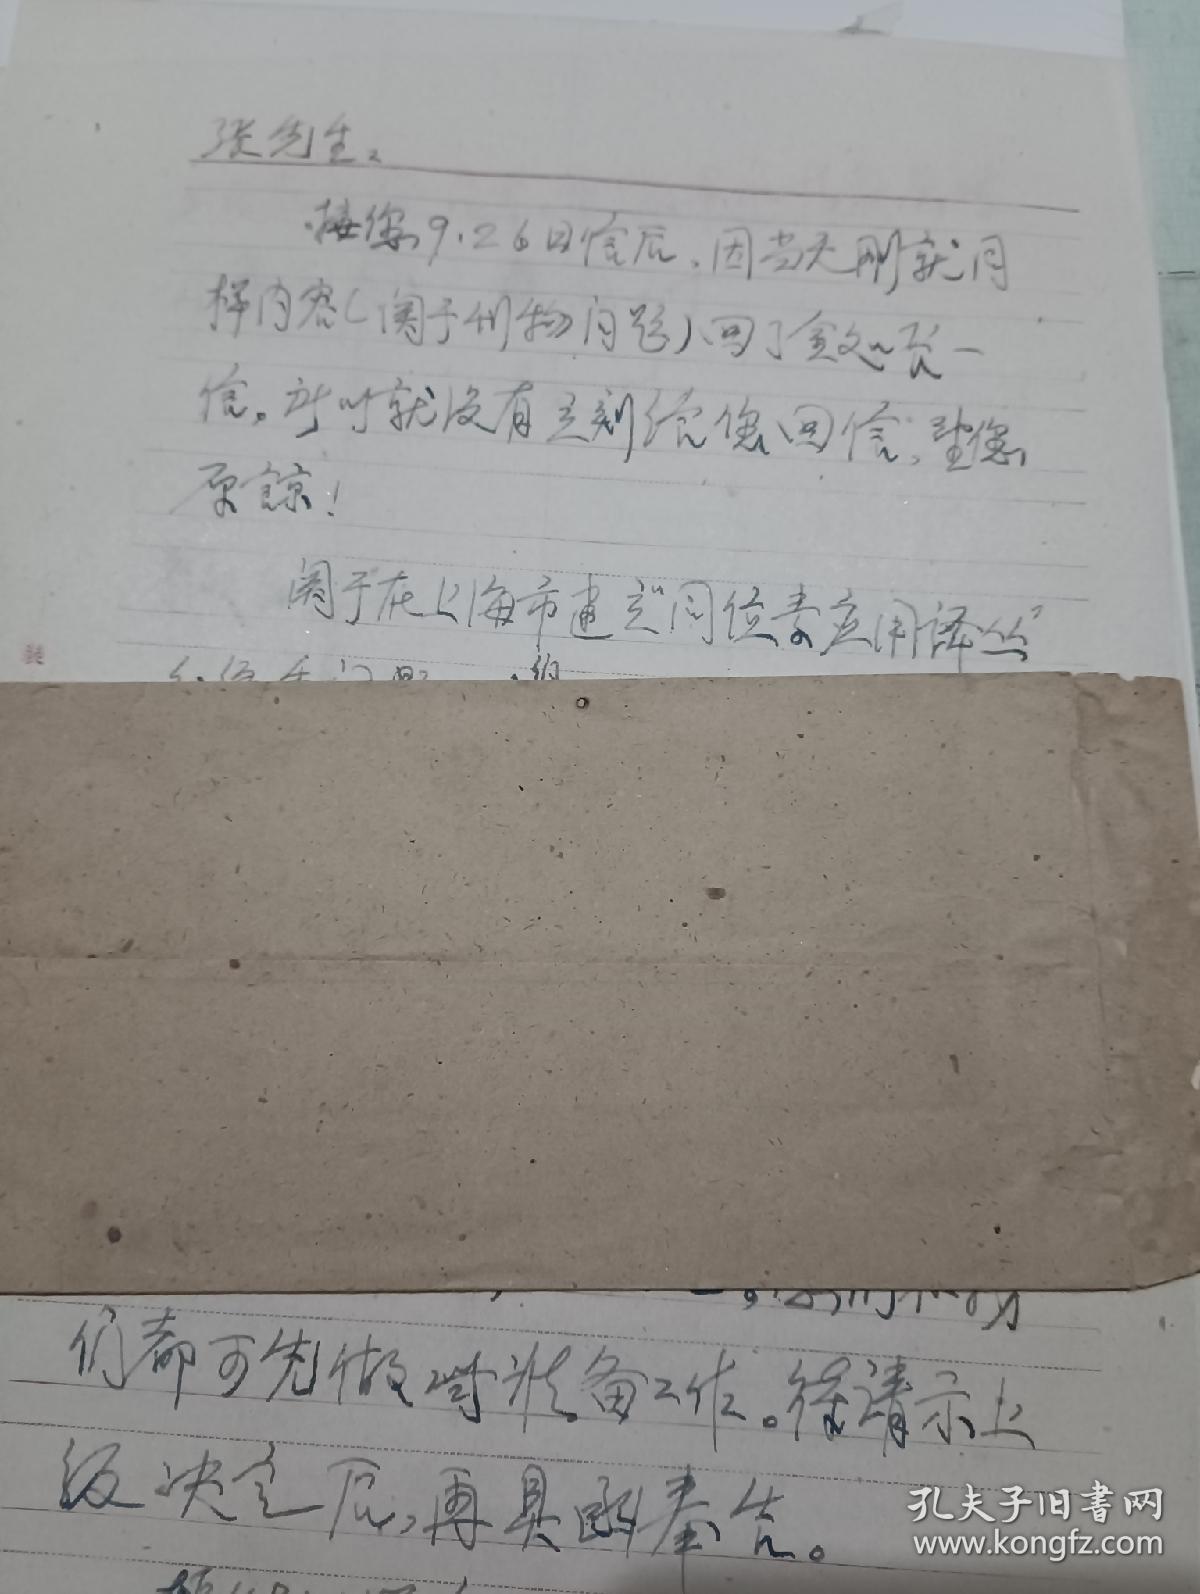 张先生、
接您9.26日信后，因当天刚就同
样内容（阅于刊物问题）回了金处长一
信。所以就没有立刻给您回信，望您
原谅！
阅于在上海市建立“同位素应用译丛”
们都可先做些准备工作。待请示上
级决定后，再具函奉告。
孔夫子旧书网
www.kongfz.com